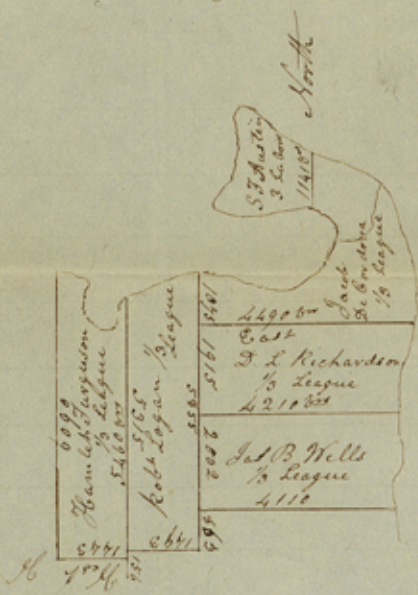 North
S F Austin
3 Labor
1141
Jacob
De Cordova
1/3 League
4490 vrs
East
D. L Richardson
1/3 League
4210 vrs
Jas B Wells
1/3 League
4110
6090
Hamlet Ferguson
1/3 League
5460 vrs
5165
Robt Logan 1/3
League
5355
1915
2202
565
1443
1493
156
West